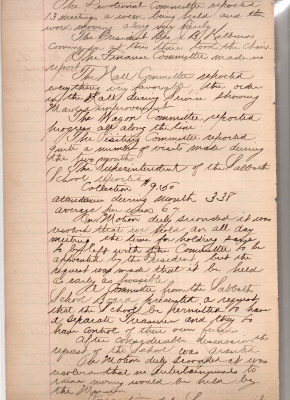 The Devotional Committee reported
13 meetings a week being held and the
work moving along very nicely
The President Bro J. B. Kilburn
coming in at this time took the chair.
The Finance Committee made no
report.
The Hall Committee reported
everything very favorably, the order
in the Hall during service showing
Marked improvement
The Wagon Committee reported
progress all along the line
The Visiting Committee reported
quite a number of visits made during
the two months.
The Superintendent of the Sabbath
School reported
Collection $9.50
attendance during month 338
average per 60
On Motion duly seconded it was
resolved that we hold an all day
meeting, the time for holding same
to be left with the Committee to be
appointed by the President, but the
request was made that it be held
as early as possible
A Committee from the Sabbath
School Board presented a request,
that the School be permitted to have
a separate Treasurer and also to
have control of their own funds.
After considerable discussion the
request of the School was granted
On Motion duly seconded it was
resolved that no Entertainments to
raise money would be held by
the Mission